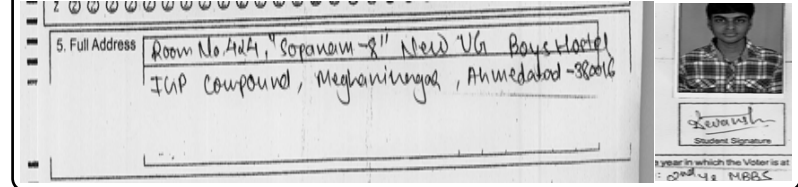 5. Full Address
Room No. 424, "Sopanam-8" New UG Boys Hostel
IGP Compound, Meghaninagar, Ahmedabad-380016
Devansh
Student Signature
n year in which the Voter is at
: 2nd Yr MBBS